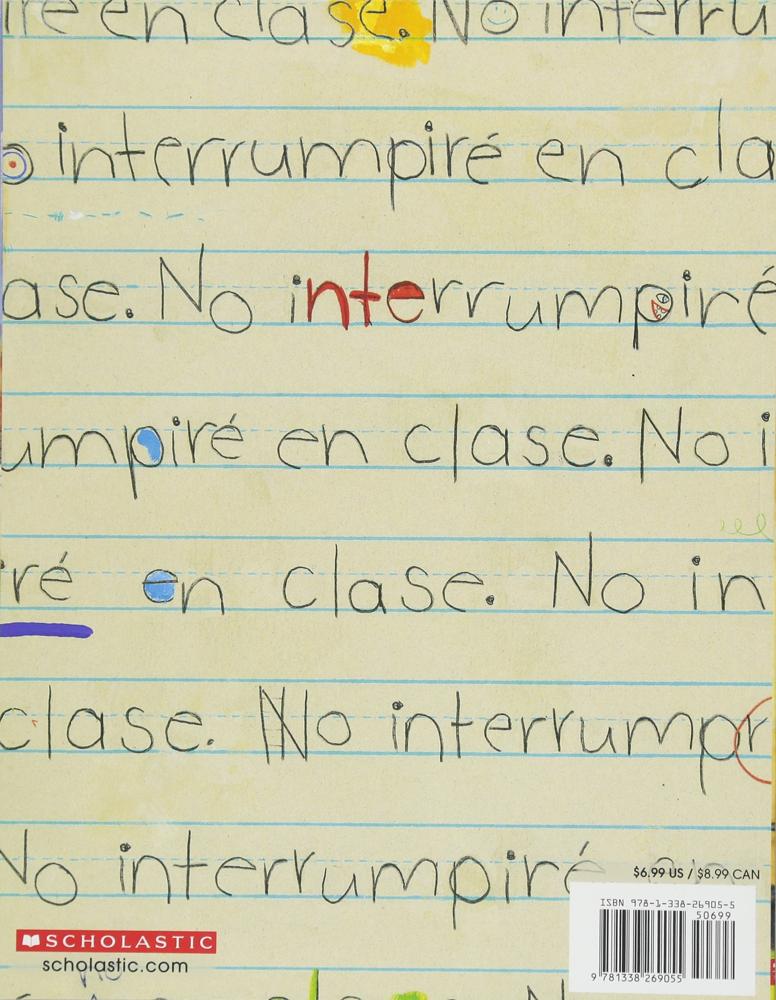 iré en clase. No interru
o interrumpiré en cla
ase. No interrumpiré
umpiré en clase. No i
iré en clase. No in
clase. No interrumpr
No interrumpiré en
$6.99 US / $8.99 CAN
ISBN 978-1-338-26905-5
50699
9 781338 269055
SCHOLASTIC
scholastic.com
No